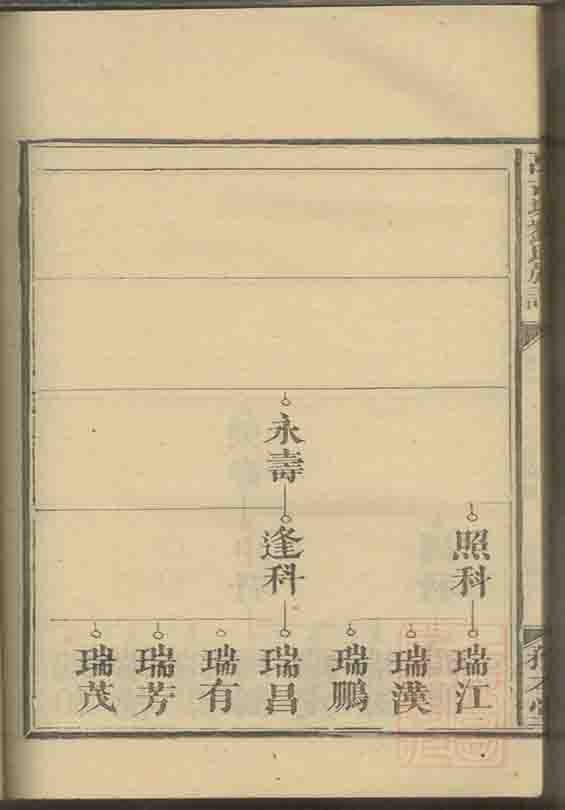 永壽
照科
逢科
瑞江
瑞漢
瑞鵬
瑞昌
瑞有
瑞芳
瑞茂